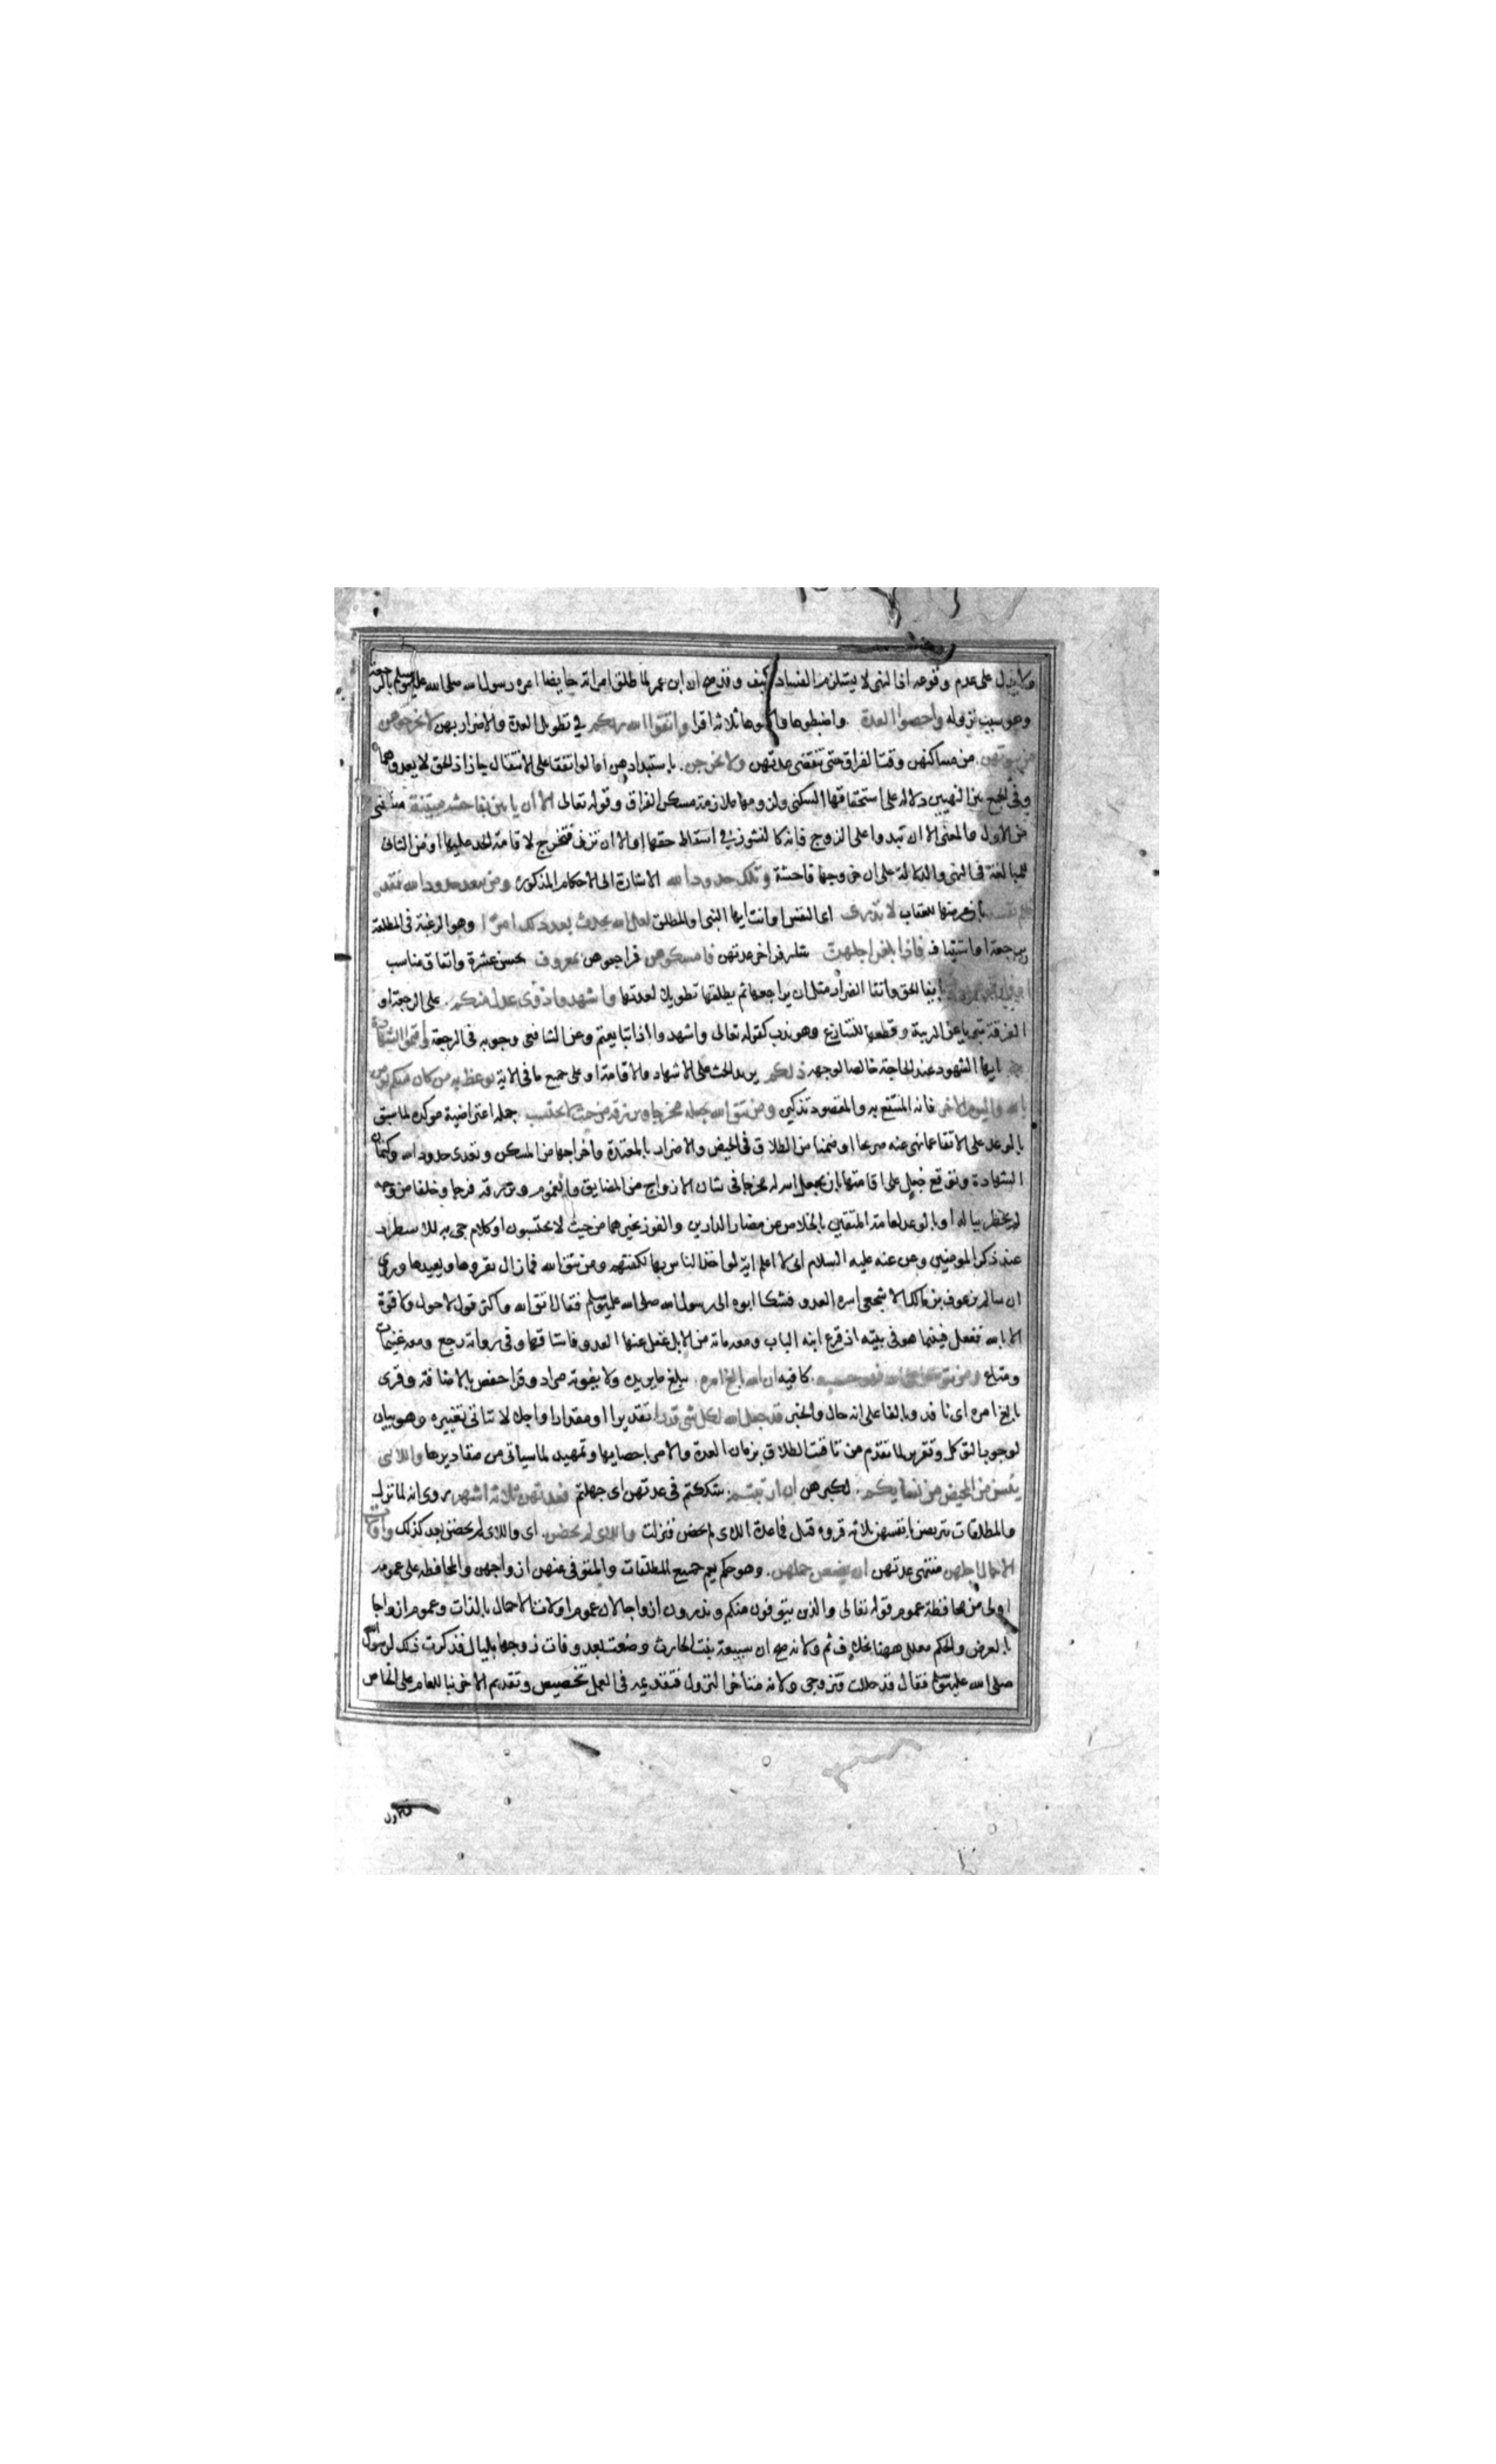 ولا يدل على عدم وقوعه اذ النهى لا يستلزم الفساد كيف وقد صح ان ابن عمر لما طلق امراته حايضا امره رسول الله صلى الله عليه وسلم بالرجعة
وهو سبب نزوله واحصوا العدة واضبطوها واكملوها ثلاثة اقرا واتقوا الله ربكم في تطويل العدة والاضرار بهن لا تخرجوهن
من بيوتهن من مساكنهن وقت الفراق حتى تنقضى عدتهن ولا يخرجن باستبدادهن اما لو اتفقا على الانتقال جاز اذ الحق لا يعدوهما
وفى الجمع بين النهيين دلالة على استحقاقها السكنى ولزومها ملازمة مسكن الفراق وقوله تعالى الا ان ياتين بفاحشة مبينة مستثنى
من الاول والمعنى الا ان تبدوا على الزوج فانه كالنشوز في اسقاط حقها او الا ان تزنى فتخرج لاقامة الحد عليها او من الثانى
للمبالغة فى النهى والدلالة على ان خروجها فاحشة وتلك حدود الله الاشارة الى الاحكام المذكورة ومن يتعد حدود الله فقد
ظلم نفسه بان عرضها للعقاب لا تدرى اى النفس او انت ايها النبى او المطلق لعل الله يحدث بعد ذلك امرا وهو الرغبة فى المطلقة
برجعة او استيناف فاذا بلغن اجلهن شارفن اخر عدتهن فامسكوهن فراجعوهن بمعروف بحسن عشرة وانفاق مناسب
او فارقوهن بمعروف بايفا الحق واتقا الضرار مثل ان يراجعها ثم يطلقها تطويلا لعدتها واشهدوا ذوى عدل منكم على الرجعة او
الفرقة تبريا عن الريبة وقطعا للتنازع وهو ندب كقوله تعالى واشهدوا اذا تبايعتم وعن الشافعى وجوبه فى الرجعة واقيموا الشهادة
لله ايها الشهود عند الحاجة خالصا لوجهه ذلكم يريد الحث على الاشهاد والاقامة او على جميع ما فى الاية يوعظ به من كان منكم يومن
بالله واليوم الاخر فانه المنتفع به والمقصود تذكيره ومن يتق الله يجعل له مخرجا ويرزقه من حيث لا يحتسب جملة اعتراضية موكدة لما سبق
بالوعد على الاتقا عما نهى عنه صريحا او ضمنا من الطلاق فى الحيض والاضرار بالمعتدة واخراجها من المسكن وتعدى حدود الله وكتمان
الشهادة وتوقع جعل على اقامتها بان يجعل الله له مخرجا فى شان الازواج من المضايق والغموم ويرزقه فرجا وخلفا من وجه
لم يخطر بباله او بالوعد لعامة المتقين بالخلاص عن مضار الدارين والفوز بخيرهما من حيث لا يحتسبون او كلام جى به للاستطراد
عند ذكر المومنين وعن عنه عليه السلام انى لا اعلم اية لو اخذ الناس بها لكفتهم ومن يتق الله فما زال يقروها ويعيدها وروى
ان سالم بن عوف بن مالك الاشجعى اسره العدو فشكا ابوه الى رسول الله صلى الله عليه وسلم فقال اتق الله واكثر قول لا حول ولا قوة
الا بالله ففعل فبينما هو فى بيته اذ قرع ابنه الباب ومعه مائة من الابل غفل عنها العدو فاستاقها وفى رواية رجع ومعه غنيمات
ومتاع ومن يتوكل على الله فهو حسبه كافيه ان الله بالغ امره يبلغ ما يريده ولا يفوته مراد وقرا حفص بالاضافة وقرى
بالغ امره اى نافذ وبالغا على انه حال والخبر قد جعل الله لكل شى قدرا تقديرا او مقدارا او اجلا لا يتاتى تغييره وهو بيان
لوجوب التوكل وتقرير لما تقدم من تاقيت الطلاق بزمان العدة والامر باحصايها وتمهيد لما سياتى من مقاديرها واللائى
يئسن من المحيض من نسايكم لكبرهن ان ارتبتم شككتم فى عدتهن اى جهلتم فعدتهن ثلاثة اشهر روى انه لما نزل
والمطلقات يتربصن بانفسهن ثلاثة قروء قيل فما عدة اللاى لم يحضن فنزلت واللاى لم يحضن اى واللاى لم يحضن بعد كذلك واولات
الاحمال اجلهن منتهى عدتهن ان يضعن حملهن وهو حكم يعم جميع المطلقات والمتوفى عنهن ازواجهن والمحافظة على عمومه
اولى من محافظة عموم قوله تعالى والذين يتوفون منكم ويذرون ازواجا لان عموم اولات الاحمال بالذات وعموم ازواجا
بالعرض والحكم معلل ههنا بخلاف ثم ولانه صح ان سبيعة بنت الحارث وضعت بعد وفات زوجها بليال فذكرت ذلك لرسول الله
صلى الله عليه وسلم فقال قد حللت فتزوجى ولانه متاخر النزول فتقديمه فى العمل تخصيص وتقديم الاخر بنا للعام على الخاص